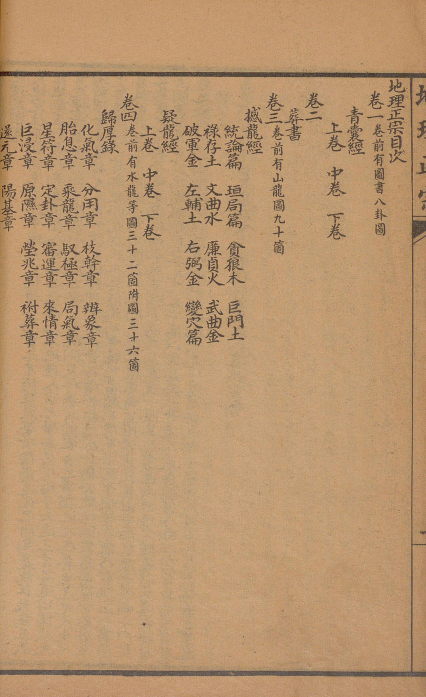 地理正宗目次
卷一 卷前有圖書八卦圖
青囊經
上卷 中卷 下卷
卷二
葬書
卷三 卷前有山龍圖九十箇
撼龍經
統論篇 垣局篇 貪狼木 巨門土
祿存土 文曲水 廉貞火 武曲金
破軍金 左輔土 右弼金 變穴篇
疑龍經
上卷 中卷 下卷
卷四 卷前有水龍等圖三十二箇附圖三十六箇
歸厚錄
化氣章 分用章 枝幹章 辨象章
胎息章 乘龍章 馭極章 局氣章
星符章 定卦章 審運章 來情章
巨浸章 原隰章 塋兆章 祔葬章
還元章 陽基章